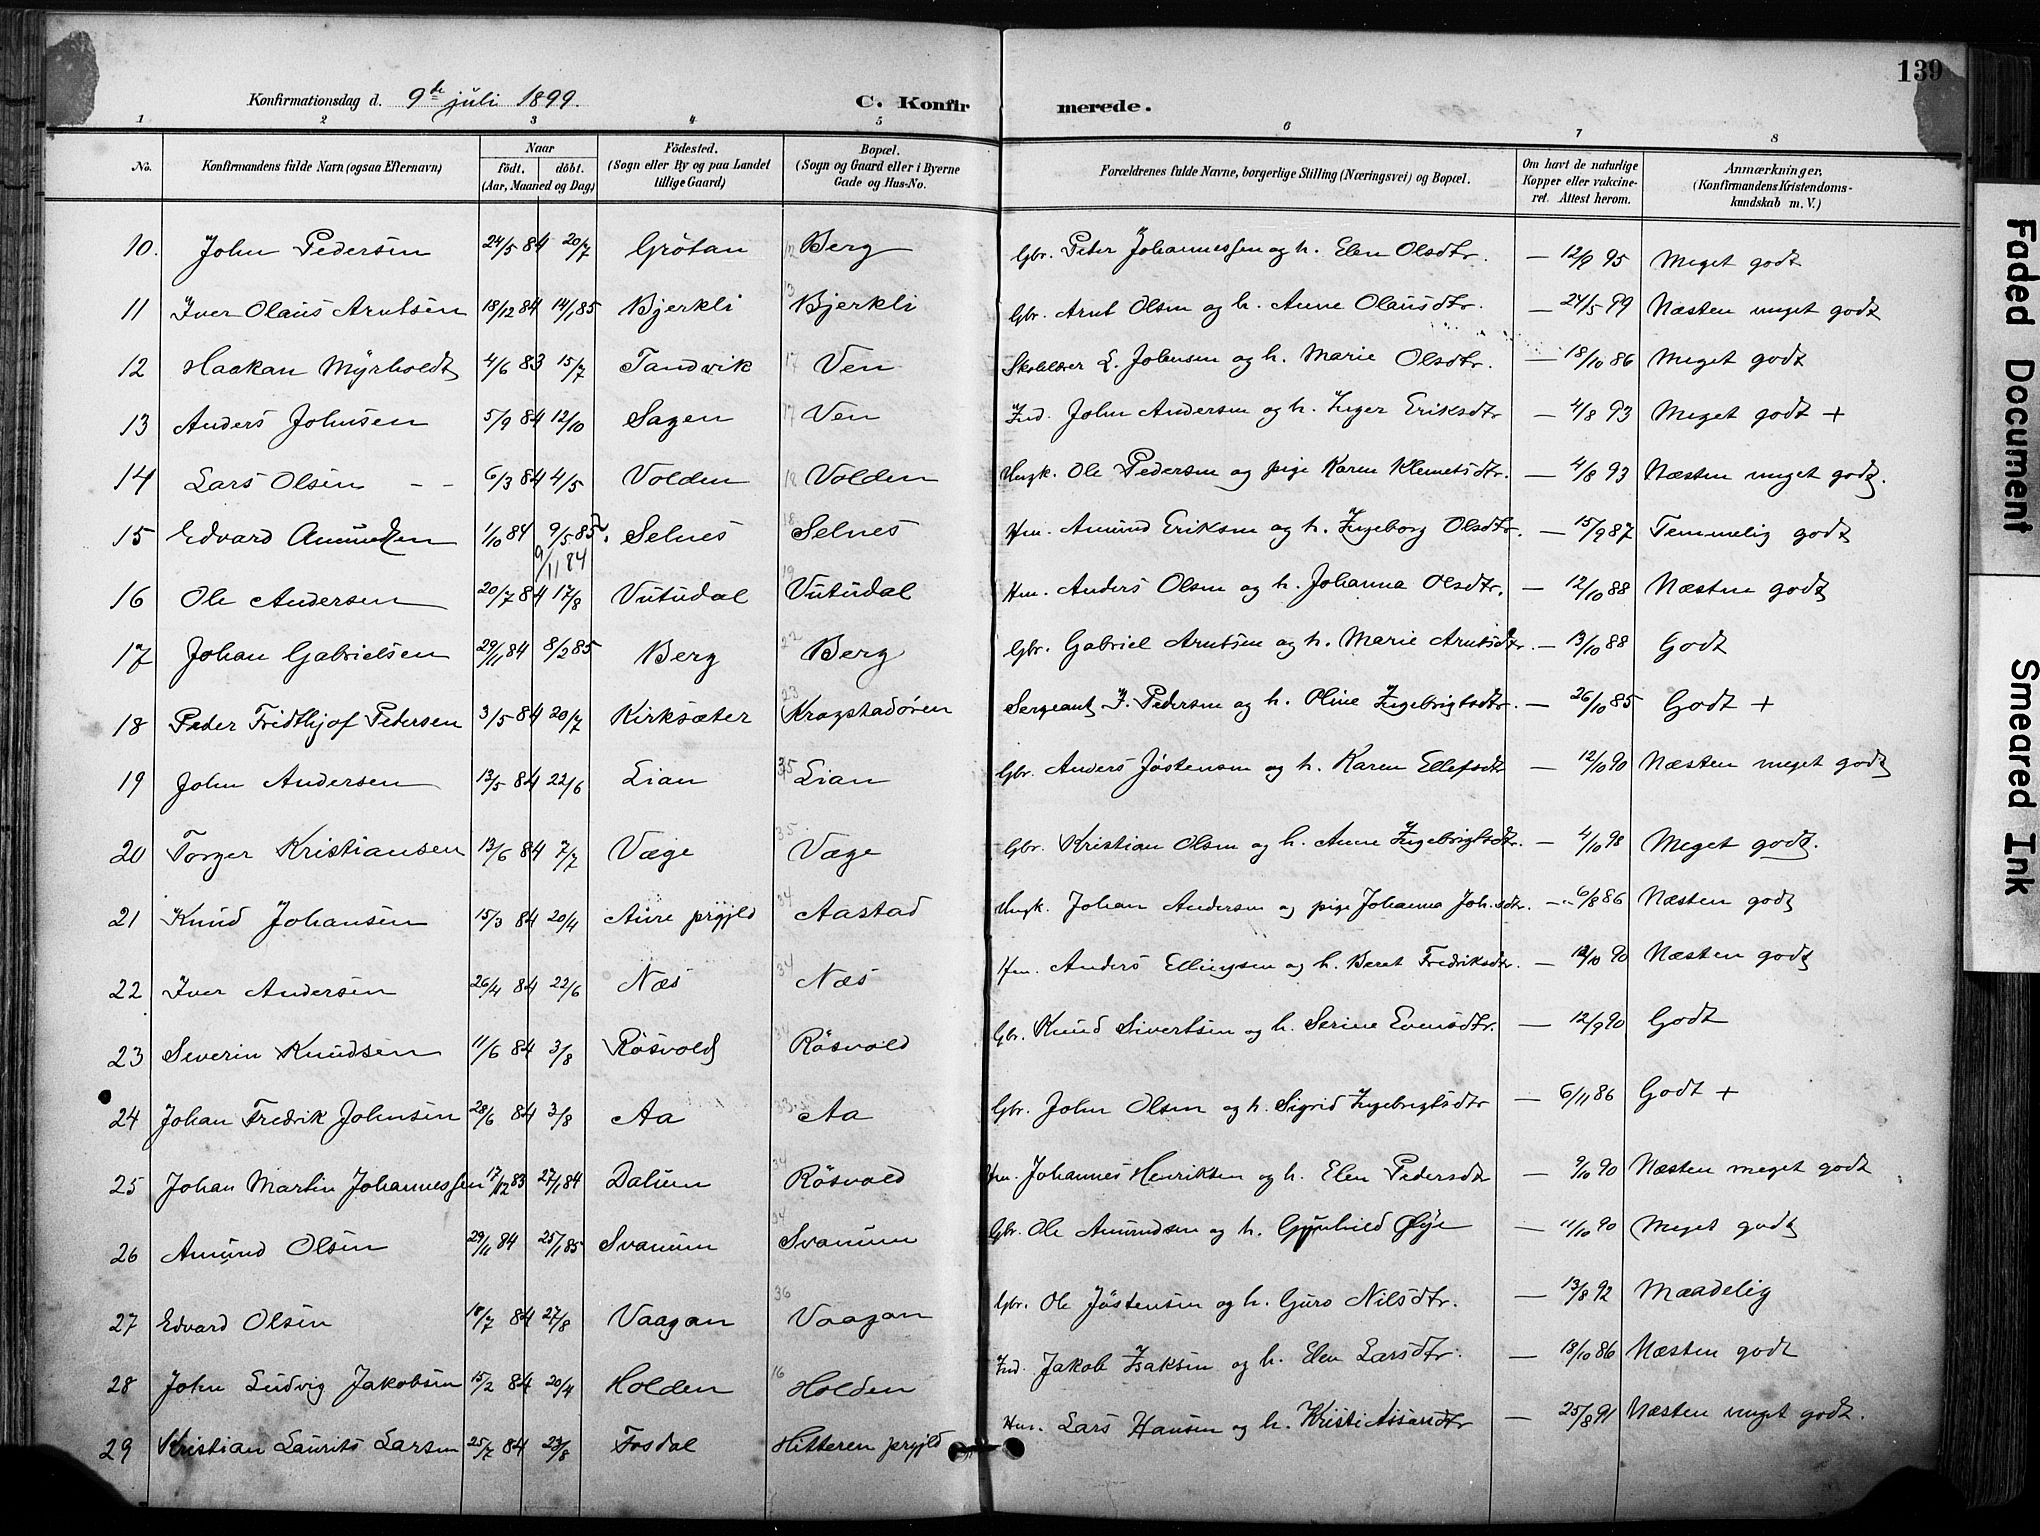 139
Konfirmationsdag d. 9de juli 1899. C. Konfirmerede.
1 2 3 4 5 6 7 8
No. Konfirmandens fulde Navn (ogsaa Efternavn) Naar født. døbt. (Aar, Maaned og Dag) Fødested. (Sogn eller By og paa Landet tillige Gaard) Bopæl. (Sogn og Gaard eller i Byerne Gade og Hus-No. Forældrenes fulde Navne, borgerlige Stilling (Næringsvei) og Bopæl. Om havt de naturlige Kopper eller vakcineret. Attest herom. Anmærkninger. (Konfirmandens Kristendomskundskab m. V.)
10. John Pedersen 24/5 84 20/7 Grötan 12 Berg Gbr. Peder Johannessen og h. Elen Olsdtr. — 12/9 95 Meget godt
11 Iver Olaus Arntsen 18/12 84 14/1 85 Bjerkli 13 Bjerkli Gbr. Arnt Olsen og h. Anne Olausdtr. — 24/5 99 Næsten meget godt
12 Haakan Myrholdt 4/6 83 15/7 Tandvik 17 Ven Skolelærer L. Johnsen og h. Marie Olsdtr. — 18/10 86 Meget godt
13 Anders Johnsen 5/9 84 12/10 Sagen 17 Ven Ind. John Andersen og h. Inger Eriksdtr — 4/8 93 Meget godt +
14 Lars Olsen - - 6/3 84 4/5 Volden 18 Volden Ungk. Ole Pedersen og pige Karen Klemetsdtr. — 4/8 93 Næsten meget godt.
15 Edvard Amundsen 1/10 84 9/5 85. 9/11 84 Selnes 18 Selnes Hm. Amund Eriksen og h. Ingeborg Olsdtr. — 15/9 87 Temmelig godt
16 Ole Andersen 20/7 84 17/8 Vutudal 19 Vutudal Hm. Anders Olsen og h. Johanna Olsdtr. — 12/10 88 Næsten godt
17 Johan Gabrielsen 29/11 84 8/2 85 Berg 22 Berg Gbr. Gabriel Arntsen og h. Marie Arntsdtr. — 13/10 88 Godt
18 Peder Fridthjof Pedersen 3/5 84 20/7 Kirksæter 23 Krogstadören Sergeant J. Pedersen og h. Oline Ingebrigtsdtr. — 26/10 85 Godt +
19 John Andersen 13/5 84 22/6 Lian 35 Lian Gbr. Anders Jöstensen og h. Karen Ellefsdtr — 12/10 90 Næsten meget godt
20 Torger Kristiansen 13/6 84 7/7 Væge 35 Væge Gbr. Kristian Olsen og h. Anne Ingebrigtsdtr. — 4/10 98 Meget godt.
21 Knud Johansen 15/3 84 20/4 Aure prgjld 34 Aastad Ungk. Johan Andersen og pige Johanna Joh.sdtr. — 6/8 86 Næsten godt
22 Iver Andersen 26/4 84 22/6 Næs 34 Næs Hm. Anders Ellingsen og h. Beret Fredriksdtr. — 12/10 90 Næsten godt
23 Severin Knudsen 11/6 84 3/8 Rösvold 34 Rösvold Gbr. Knud Sivertsen og h. Serine Evensdtr. — 12/9 90 Godt
24 Johan Fredrik Johnsen 28/6 84 3/8 Aa 33 Aa Gbr. John Olsen og h. Sigrid Ingebrigtsdtr — 6/11 86 Godt +
25 Johan Martin Johannessen 17/12 83 27/1 84 Dalum 34 Rösvold Hm. Johannes Henriksen og h. Elen Pedersdtr — 9/10 90 Næsten meget godt
26 Amund Olsen 29/11 84 25/1 85 Svanum 34 Svanum Gbr. Ole Amundsen og h. Gunhild Øye — 11/10 90 Meget godt
27 Edvard Olsen 18/7 84 27/8 Vaagan 36 Vaagan Gbr. Ole Jöstensen og h. Guro Nilsdtr. — 13/8 92 Maadelig
28 John Ludvig Jakobsen 15/2 84 20/4 Holden 16 Holden Ind. Jakob Isaksen og h. Elen Larsdtr. — 18/10 86 Næsten godt
29 Kristian Laurits Larsen 25/7 84 23/8 Fosdal Hitteren prgjld Hm. Lars Hansen og h. Kristi Assersdtr — 25/8 91 Næsten meget godt.
Faded Document
Smeared Ink